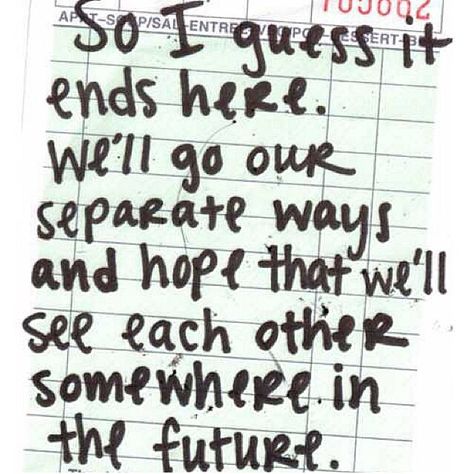 705662
APPT-SOUP/SAL-ENTREE/VEG/POT-DESSERT-BEV
So I guess it
ends here.
We'll go our
separate ways
and hope that we'll
see each other
somewhere in
the future.